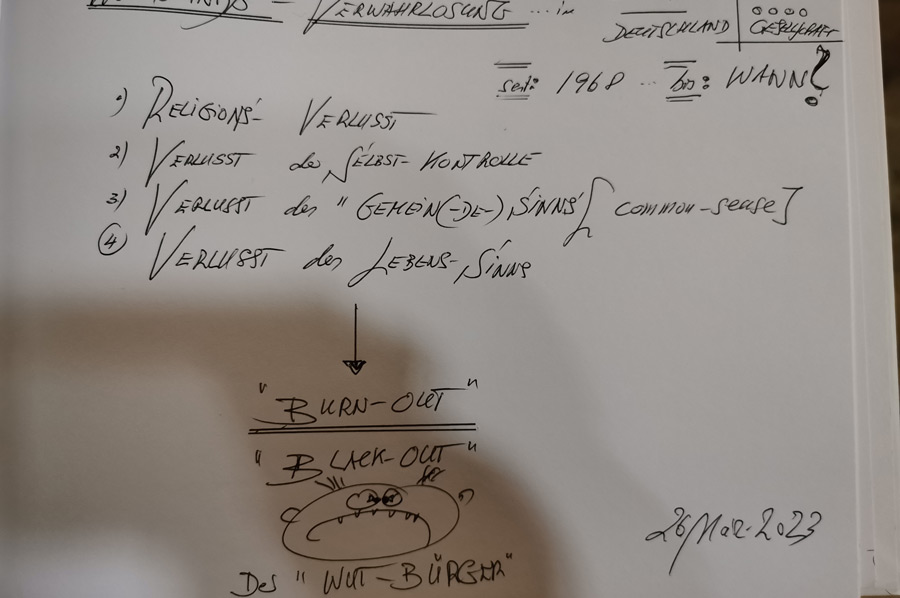 VERWAHRLOSUNG ... in DEUTSCHLAND GESELLSCHAFT
seit: 1968 ... bis: WANN?
1) RELIGIONS- VERLUSST
2) VERLUSST der SELBST-KONTROLLE
3) VERLUSST des "GEMEIN(-DE-)SINNS" [common-sense]
4 VERLUSST des LEBENS-SINNS
"BURN-OUT"
"BLACK-OUT"
Des "WUT-BÜRGER"
26 Mär. 2023